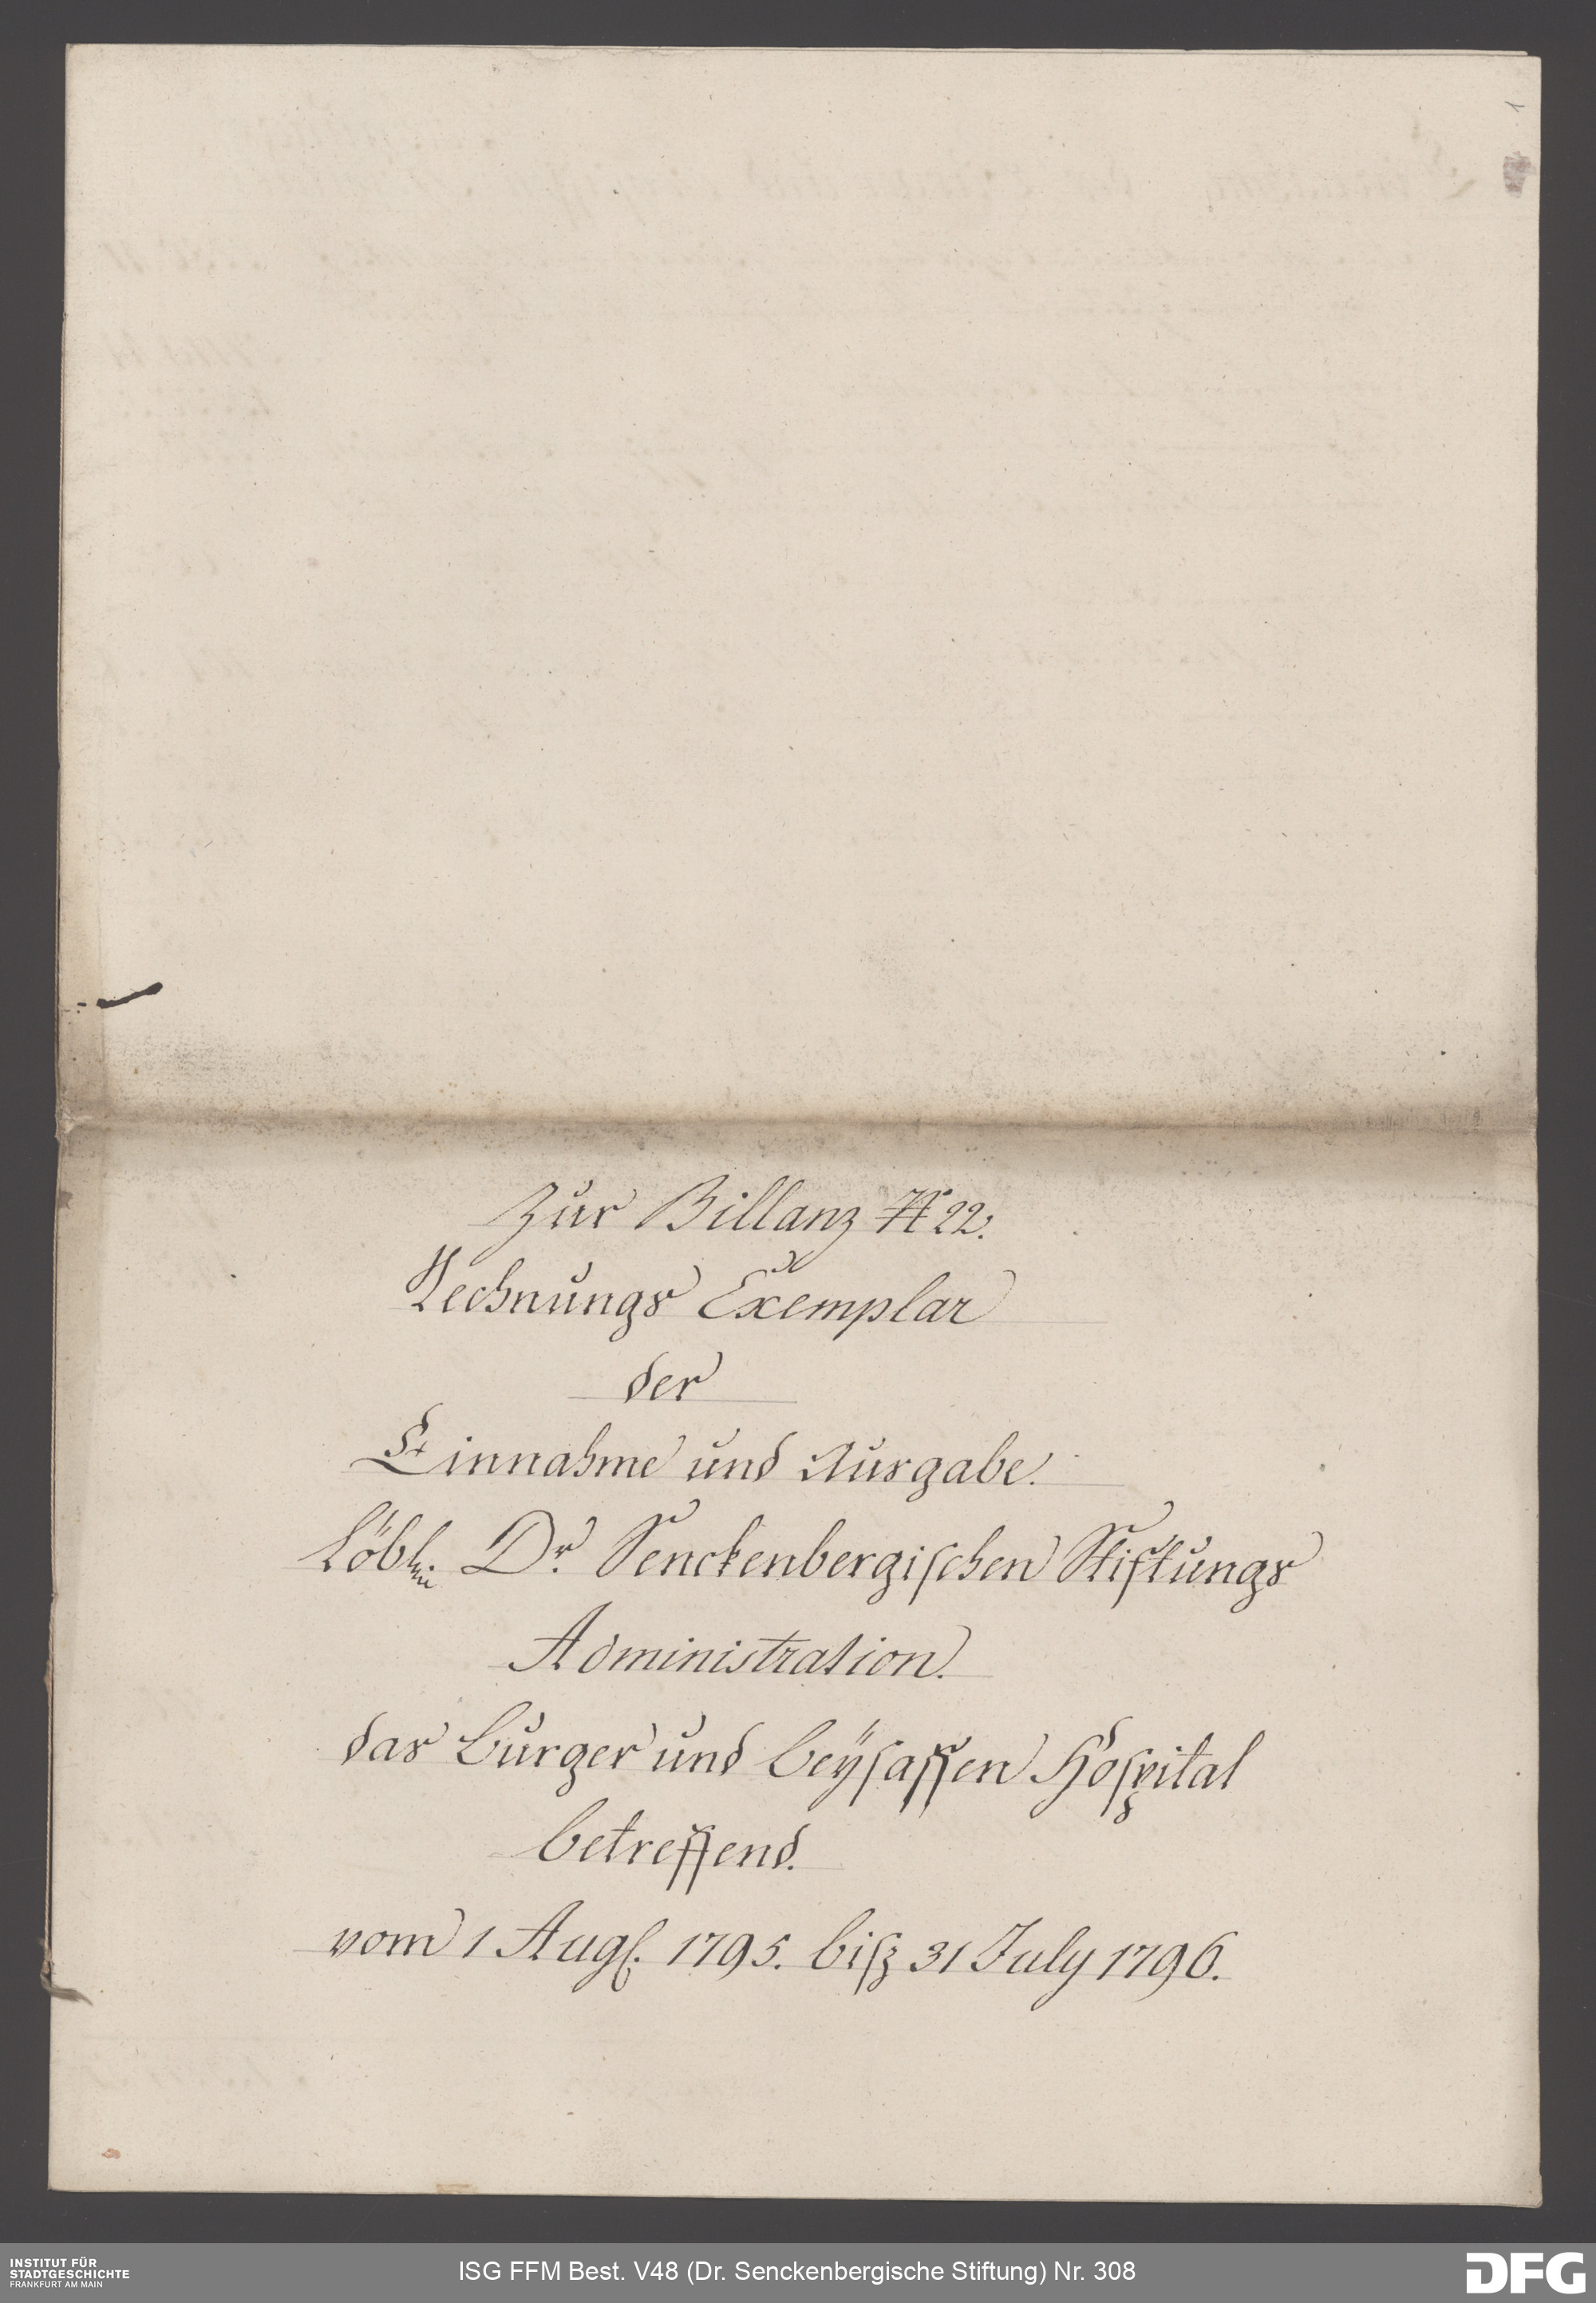 1
Zur Billanz № 22.
Rechnungs Exemplar
der
Einnahme und Ausgabe.
Löbl. Dr. Senckenbergischen Stiftungs
Administration.
das Burger und Beÿsassen Hospital
betreffend.
vom 1 Augs. 1795. biß 31 July 1796.
INSTITUT FÜR
STADTGESCHICHTE
FRANKFURT AM MAIN
ISG FFM Best. V48 (Dr. Senckenbergische Stiftung) Nr. 308
DFG